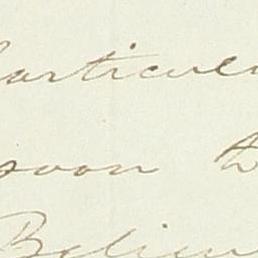 particul
soon t
Believ